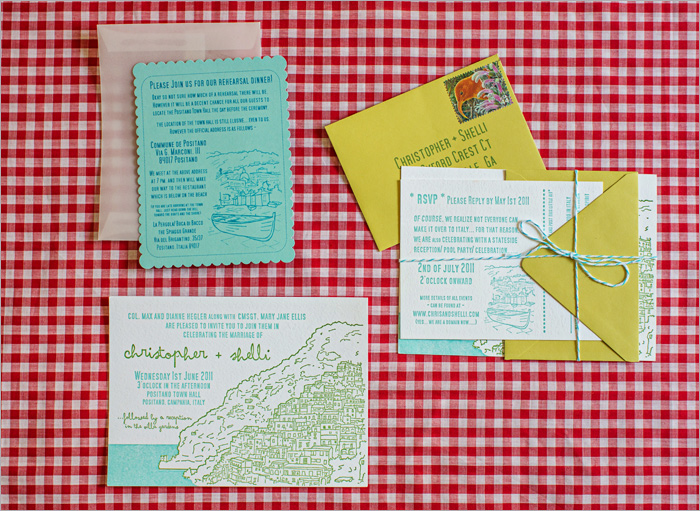 Please Join us for our rehearsal dinner!
Okay so not sure how much of a rehearsal there will be
However it will be a decent chance for all our guests to
locate the Positano Town Hall the day before the ceremony.
The location of the town hall is still eluding ...even to us.
However the official address is as follows -
Commune de Positano
Via G. Marconi, 111
84017 Positano
We meet at the above address
at 7 pm. and then will make
our way to the restaurant
which is below on the beach
La Pergola/ Buca di Bacco
the Spiaggia Grande
Via del Brigantino, 35/37
Positano, Italia 84017
Christopher + Shelli
Crest Ct
GA
* RSVP * Please Reply by May 1st 2011
Of course, we realize not everyone can
make it over to Italy... for that reason
we are also celebrating with a stateside
reception/ pool party celebration
2nd of July 2011
2 o'clock onward
More details of all events
- can be found at -
www.chrisandshelli.com
(yes... we are a domain now...)
Col. Max and Dianne Hegler along with CMSgt. Mary Jane Ellis
are pleased to invite you to join them in
celebrating the marriage of
christopher + shelli
Wednesday 1st June 2011
3 o'clock in the afternoon
Positano Town Hall
Positano, Campania, Italy
...followed by a reception
in the villa gardens